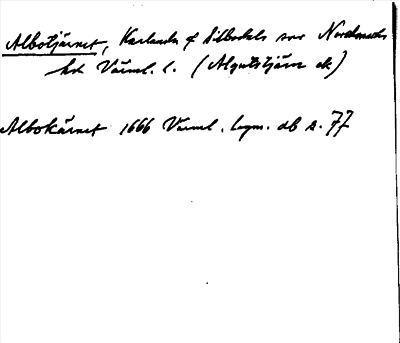 Albotjärnet, Karlanda o Silbodals snr Nordmarks
hd Värml. l. (Algutstjärn ek)
Albokärnet 1666 Värml. lagm. db s. 77